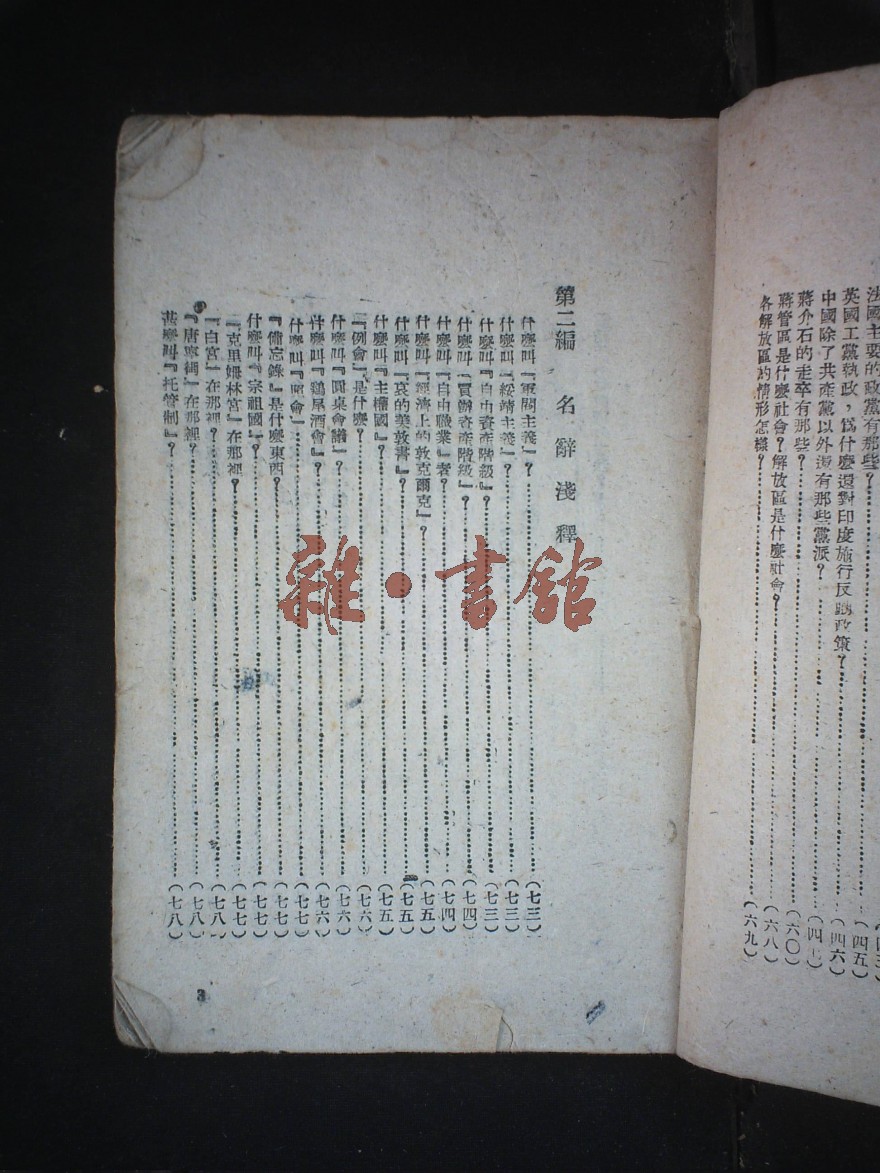 法國主要的政黨有那些？
英國工黨執政，爲什麼還對印度施行反動政策？（四五）
中國除了共產黨以外還有那些黨派？（四六）
蔣介石的走卒有那些？
蔣管區是什麼社會？解放區是什麼社會？（六八）
各解放區的情形怎樣？（六九）
第二編 名辭淺釋
什麼叫『軍閥主義』？（七三）
什麼叫『綏靖主義』？（七三）
什麼叫『自由資產階級』？（七三）
什麼叫『買辦資產階級』？（七四）
什麼叫『自由職業』者？（七四）
什麼叫『經濟上的敦克爾克』？（七五）
什麼叫『哀的美敦書』？（七五）
什麼叫『主權國』？（七五）
『例會』是什麼？（七六）
什麼叫『圓桌會議』？（七六）
什麼叫『鷄尾酒會』？（七六）
什麼叫『照會』？（七七）
『備忘錄』是什麼東西？（七七）
什麼叫『宗祖國』？（七七）
『克里姆林宮』在那裡？（七七）
『白宮』在那裡？（七八）
『唐寧街』在那裡？（七八）
甚麼叫『托管制』？（七八）
3
雜·書館